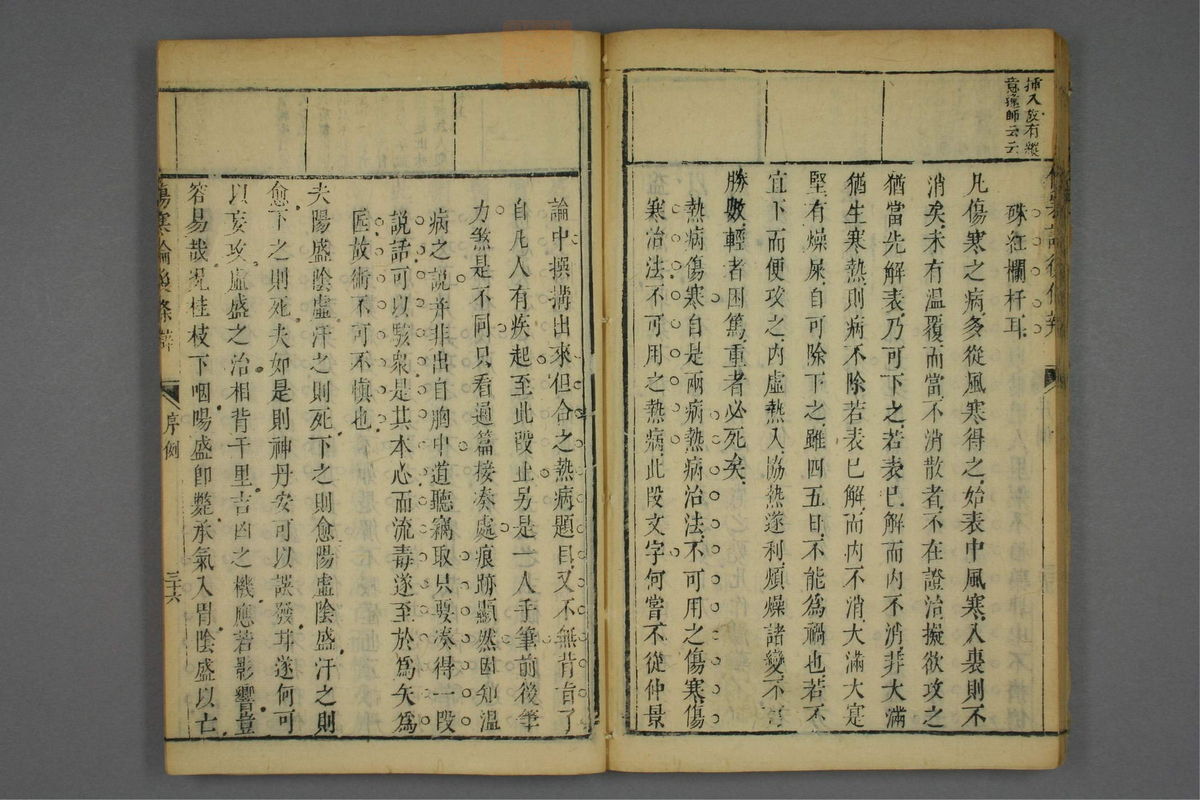 插入故有縱
意逢師云云
硃紅欄杆耳
凡傷寒之病多從風寒得之始表中風寒入裏則不
消矣未有溫覆而當不消散者不在證治擬欲攻之
猶當先解表乃可下之若表已解而內不消非大滿
猶生寒熱則病不除若表已解而內不消大滿大寔
堅有燥屎自可除下之雖四五日不能為禍也若不
宜下而便攻之內虛熱入協熱遂利煩燥諸變不可
勝數輕者困篤重者必死矣
熱病傷寒自是兩病熱病治法不可用之傷寒傷
寒治法不可用之熱病此段文字何嘗不從仲景
論中撰搆出來但合之熱病題目又不無背旨了
自凡人有疾起至此段止另是一人手筆前後筆
力煞是不同只看過篇接凑處痕跡顯然因知溫
病之說并非出自胸中道聽竊取只要凑得一段
說話可以駭衆是其本心而流毒遂至於為矢為
匠故術不可不慎也
夫陽盛陰虛汗之則死下之則愈陽虛陰盛汗之則
愈下之則死夫如是則神丹安可以誤發甘遂何可
以妄攻虛盛之治相背千里吉凶之機應若影響豈
容易哉況桂枝下咽陽盛即斃承氣入胃陰盛以亡
傷寒論後條辯
序例
三十六